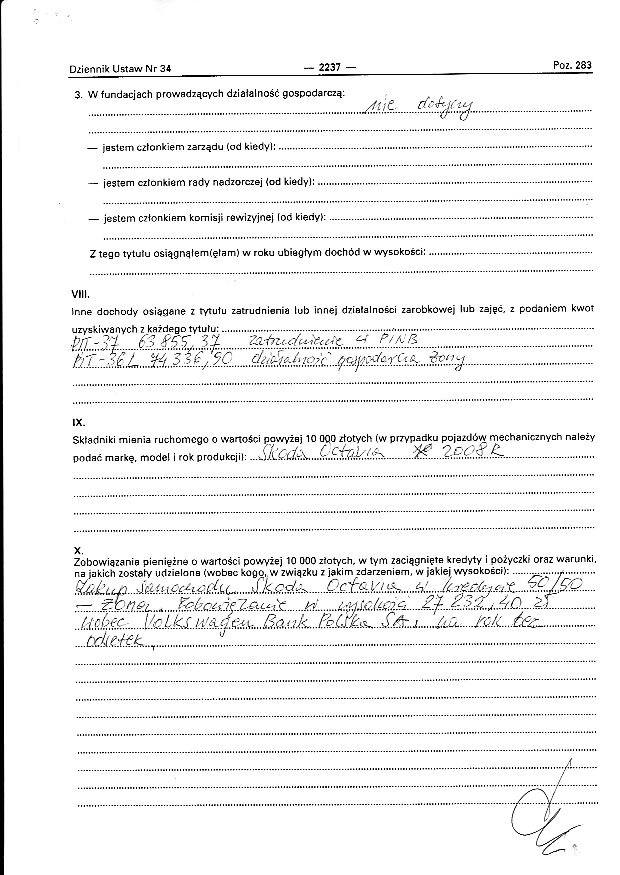 Dziennik Ustaw Nr 34 — 2237 — Poz. 283
3. W fundacjach prowadzących działalność gospodarczą:
nie dotyczy
— jestem członkiem zarządu (od kiedy):
— jestem członkiem rady nadzorczej (od kiedy):
— jestem członkiem komisji rewizyjnej (od kiedy):
Z tego tytułu osiągnąłem(ęłam) w roku ubiegłym dochód w wysokości:
VIII.
Inne dochody osiągane z tytułu zatrudnienia lub innej działalności zarobkowej lub zajęć, z podaniem kwot
uzyskiwanych z każdego tytułu:
PIT-37 63 855,37 zatrudnienie w PINB
PIT-36L 74 336,50 działalność gospodarcza żony
IX.
Składniki mienia ruchomego o wartości powyżej 10 000 złotych (w przypadku pojazdów mechanicznych należy
podać markę, model i rok produkcji): Skoda Octavia 2008 R
X.
Zobowiązania pieniężne o wartości powyżej 10 000 złotych, w tym zaciągnięte kredyty i pożyczki oraz warunki,
na jakich zostały udzielone (wobec kogo, w związku z jakim zdarzeniem, w jakiej wysokości):
Zakup samochodu Skoda Octavia w kredycie 50/50
— żona. Zobowiązanie w wysokości 27 232,40 zł
wobec Volkswagen Bank Polska SA, na rok bez
odsetek